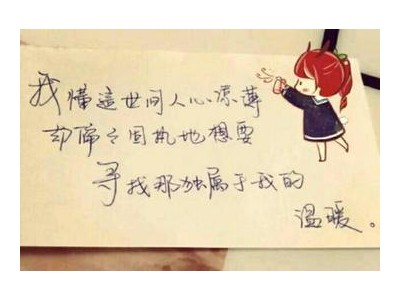 我懂這世间人心凉薄
却偏偏固执地想要
寻找那独属于我的
温暖。